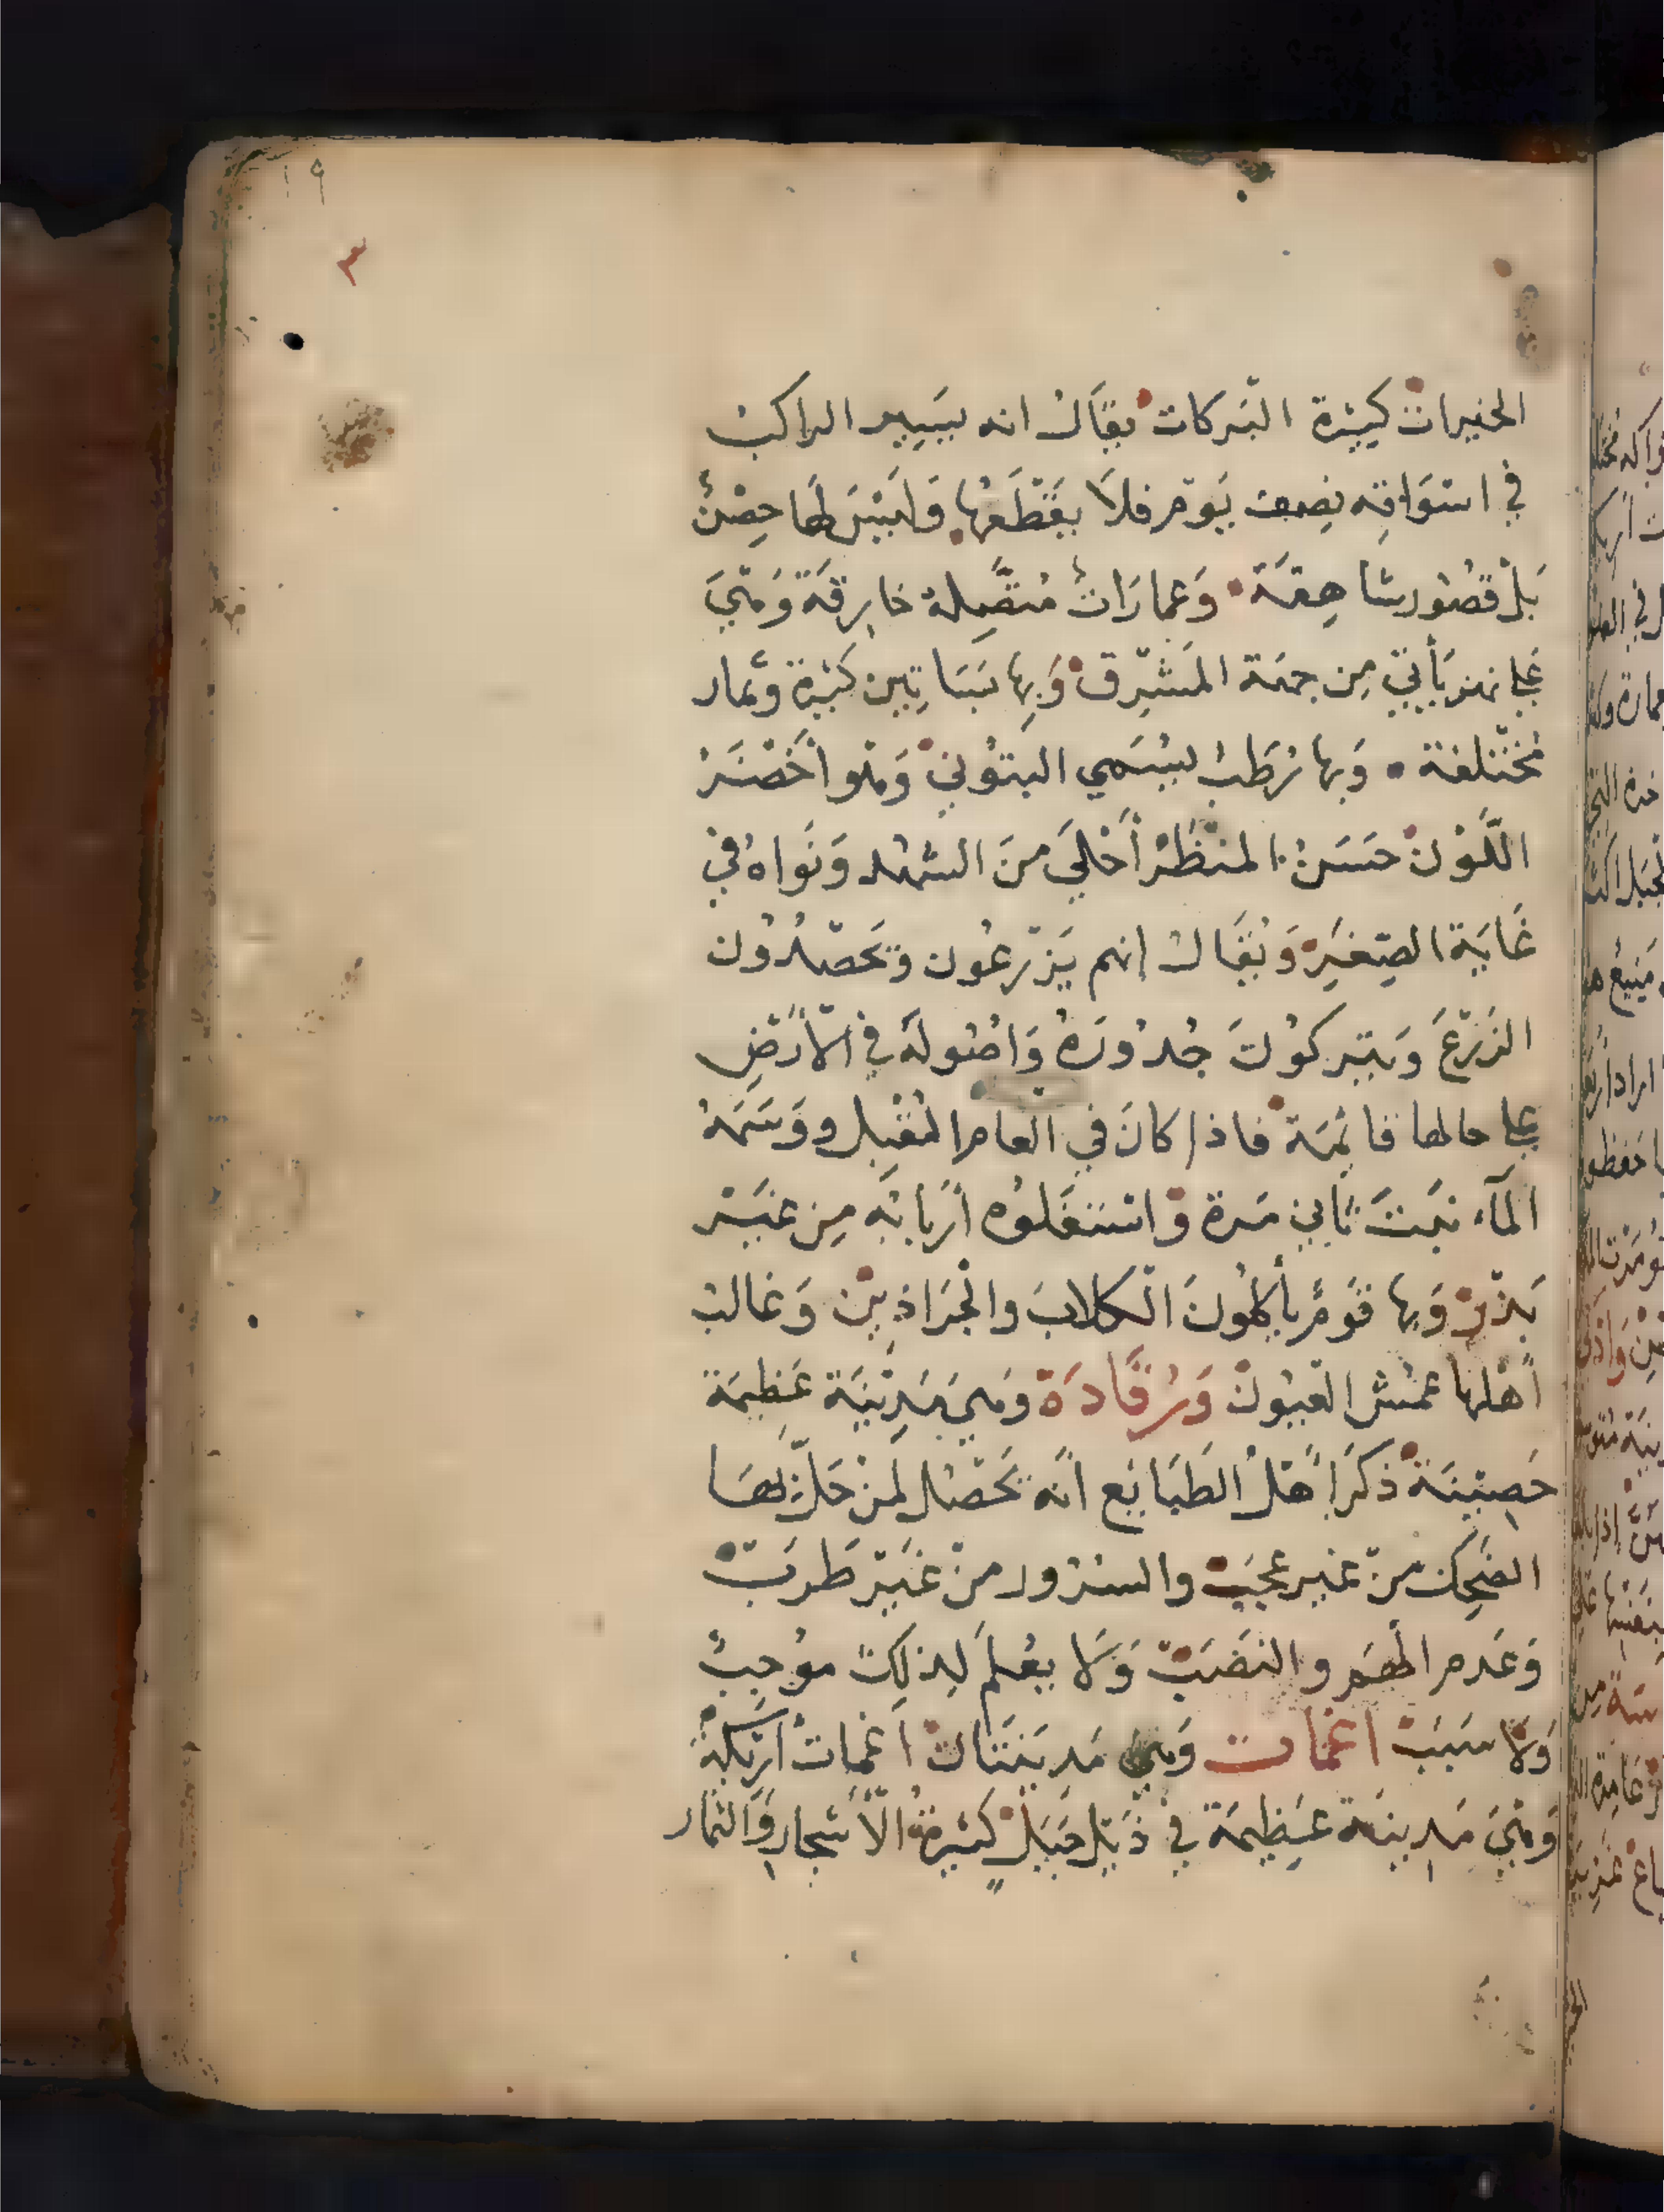 ١٩
٣
الخيرات كثيرة البَركات يقَال انه يسَير الراكبُ
في اسْوَاقِه نِصف يَوْمٍ فلَا يَقْطَعُها وَليْسَ لهَا حِصْنٌ
بَلْ قصُور شاهِقَة وَعمارَاتٌ مُتَّصِلة خارقَة وَهيَ
عَلى نهر يَأتي مِن جهَة المَشْرِق وَبِها بسَاتِين كَثيرة وثمار
مُخْتلفة وَبها رُطَبٌ يُسَمي البتُوني وَهْو أخْضَرُ
اللّوْن حسَنُ المنظَرْ أحْلَي منَ الشهْد وَنَواهُ في
غَايَة الصِغَرِ وَيُقَال إنهم يَزْرعُون وَيَحْصدُون
الزَرْعَ وَيتركُونَ جُدُورَهُ وَاصُولَهُ في الأرْضِ
عَلى حالها قائمَة فاذا كانَ في العام المُقْبل وَوَسَمَهُ
المَآء نبَتَ ثَاني مَرة وَاسْتغَلوُه أرْبابُه مِن غيْر
بَذْر وَبِها قوْمٌ يأكلُونَ الكلابَ والْجَرَاذين وَغالبُ
أهْلها عُمْش العُيُون وَرُقَّادَة وَهي مَدِينَة عَظيمَة
حَصِينَة ذكَرَ أهْلُ الطَبَايَع انَه يَحْصُل لمنْ حَلَّ بهَا
الضَحِك منْ غَير عجَبٍ والسُرُور منْ غَيْر طَرَبٍ
وَعَدم الهَم والنَصَبِ وَلَا يعْلمَ لِذلِكَ مُوجِبٌ
وَلَا سَبَبٌ اغمات وَهي مَدينَتَان اغمات ارْيكة
وَهيَ مَدينَة عَظِيمَة في ذَيْل جَبَل كثيرَةُ الأشجار وَالثمار